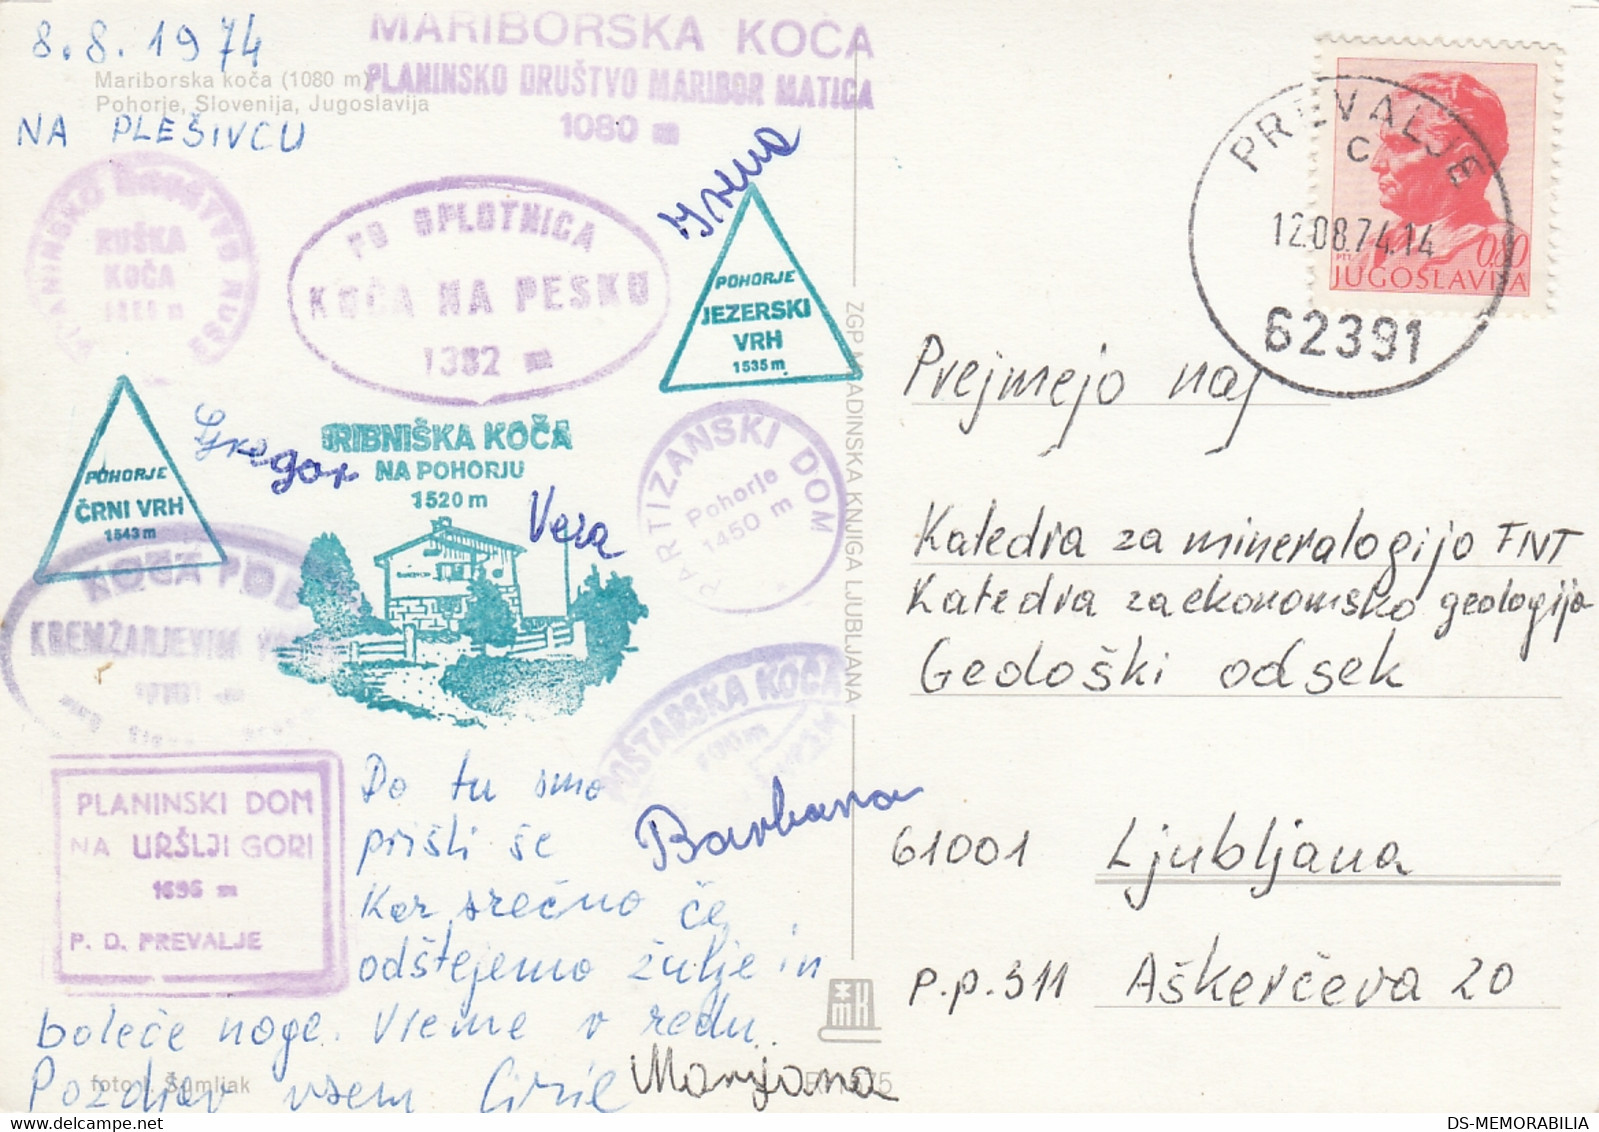 8.8.1974
Mariborska koča (1080 m)
Pohorje, Slovenija, Jugoslavija
NA PLEŠIVCU
MARIBORSKA KOČA
PLANINSKO DRUŠTVO MARIBOR MATICA
1080 m
PLANINSKO DRUŠTVO RUŠE
RUŠKA
KOČA
PD OPLOTNICA
KOČA NA PESKU
1382 m
Irena
POHORJE
JEZERSKI
VRH
1535 m.
POHORJE
ČRNI VRH
1543 m
Gregor
RIBNIŠKA KOČA
NA POHORJU
1520 m
Vera
PARTIZANSKI DOM
Pohorje
1450 m
KOČA POD
KREMŽARJEVIM
POŠTARSKA KOČA
PLANINSKI DOM
NA URŠLJI GORI
1696 m
P. D. PREVALJE
Do tu smo
prišli še
Kar srečno če
odštejemo žulje in
boleče noge. Vreme v redu.
Pozdrav vsem Ciril
Barbara
Marjana
foto I. Šumljak
ZGP MLADINSKA KNJIGA LJUBLJANA
MK
PREVALJE
C
12.08.74.14
62391
0.80
PTT
JUGOSLAVIJA
Prejmejo naj
Katedra za mineralogijo FNT
Katedra za ekonomsko geologijo
Geološki odsek
61001 Ljubljana
p.p. 311 Aškerčeva 20
DS-MEMORABILIA